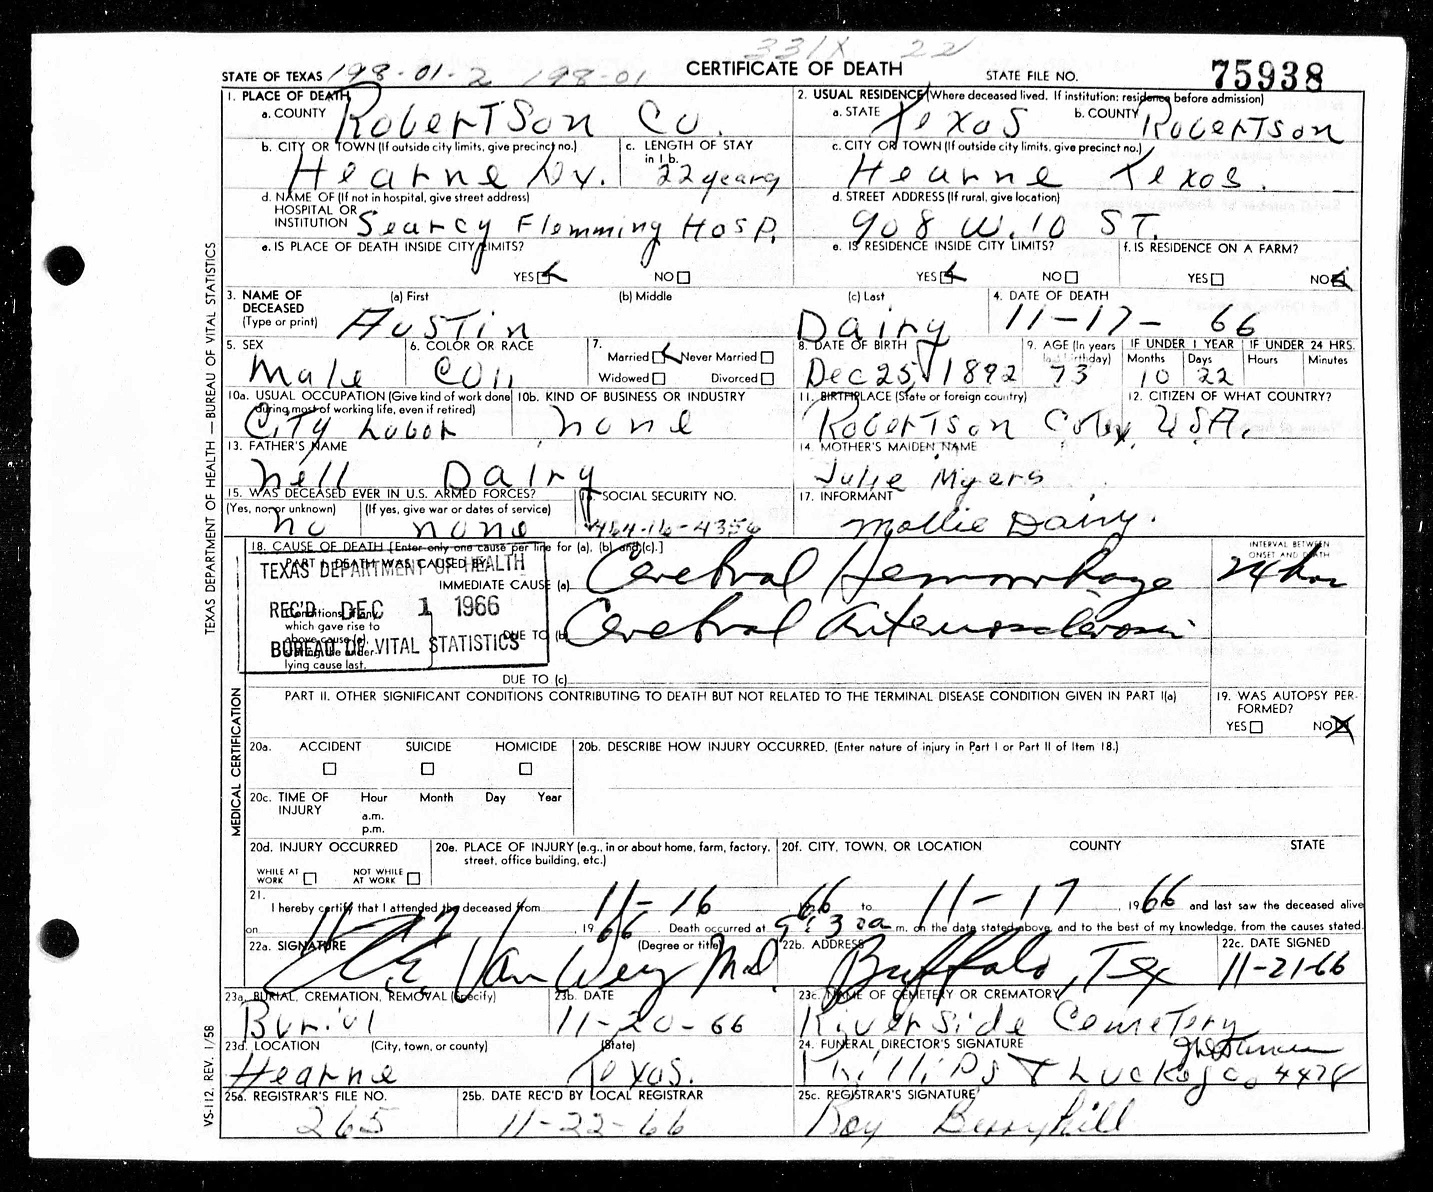 331X 22
STATE OF TEXAS 198-01-2 198-01 CERTIFICATE OF DEATH STATE FILE NO. 75938
1. PLACE OF DEATH
a. COUNTY Robertson Co.
2. USUAL RESIDENCE (Where deceased lived. If institution: residence before admission)
a. STATE Texas b. COUNTY Robertson
b. CITY OR TOWN (If outside city limits, give precinct no.) Hearne
c. LENGTH OF STAY in 1 b. 22 years
c. CITY OR TOWN (If outside city limits, give precinct no.) Hearne Texas.
d. NAME OF (If not in hospital, give street address) HOSPITAL OR INSTITUTION Searcy Flemming Hosp.
d. STREET ADDRESS (If rural, give location) 908 W. 10 ST.
e. IS PLACE OF DEATH INSIDE CITY LIMITS?
YES NO
e. IS RESIDENCE INSIDE CITY LIMITS?
YES NO
f. IS RESIDENCE ON A FARM?
YES NO
3. NAME OF DECEASED (Type or print)
(a) First (b) Middle (c) Last
Austin Dairy
4. DATE OF DEATH
11-17-66
5. SEX
Male
6. COLOR OR RACE
Col
7.
Married Never Married
Widowed Divorced
8. DATE OF BIRTH
Dec 25, 1892
9. AGE (In years last birthday)
73
IF UNDER 1 YEAR IF UNDER 24 HRS.
Months Days Hours Minutes
10 22
10a. USUAL OCCUPATION (Give kind of work done during most of working life, even if retired)
City Labor
10b. KIND OF BUSINESS OR INDUSTRY
none
11. BIRTHPLACE (State or foreign country)
Robertson Co Tex
12. CITIZEN OF WHAT COUNTRY?
USA.
13. FATHER'S NAME
Nell Dairy
14. MOTHER'S MAIDEN NAME
Julie Myers
15. WAS DECEASED EVER IN U.S. ARMED FORCES?
(Yes, no, or unknown) (If yes, give war or dates of service)
no none
16. SOCIAL SECURITY NO.
464-16-4356
17. INFORMANT
Mollie Dairy.
18. CAUSE OF DEATH [Enter only one cause per line for (a), (b) and (c).]
INTERVAL BETWEEN ONSET AND DEATH
PART I. DEATH WAS CAUSED BY:
IMMEDIATE CAUSE (a) Cerebral Hemorrhage 24 hrs
TEXAS DEPARTMENT OF HEALTH
REC'D DEC 1 1966
BUREAU OF VITAL STATISTICS
Conditions, if any, which gave rise to above cause (a), stating the underlying cause last.
DUE TO (b) Cerebral Arteriosclerosis
DUE TO (c)
PART II. OTHER SIGNIFICANT CONDITIONS CONTRIBUTING TO DEATH BUT NOT RELATED TO THE TERMINAL DISEASE CONDITION GIVEN IN PART I(a)
19. WAS AUTOPSY PERFORMED?
YES NO
20a. ACCIDENT SUICIDE HOMICIDE
20b. DESCRIBE HOW INJURY OCCURRED. (Enter nature of injury in Part I or Part II of Item 18.)
20c. TIME OF INJURY Hour Month Day Year
a.m.
p.m.
20d. INJURY OCCURRED
WHILE AT WORK NOT WHILE AT WORK
20e. PLACE OF INJURY (e.g., in or about home, farm, factory, street, office building, etc.)
20f. CITY, TOWN, OR LOCATION COUNTY STATE
21.
I hereby certify that I attended the deceased from 11-16 66 to 11-17, 1966 and last saw the deceased alive
on 11-17, 1966 Death occurred at 9:32a m. on the date stated above, and to the best of my knowledge, from the causes stated.
22a. SIGNATURE (Degree or title)
Van Wey M.D.
22b. ADDRESS
Buffalo, Tex
22c. DATE SIGNED
11-21-66
23a. BURIAL, CREMATION, REMOVAL (Specify)
Burial
23b. DATE
11-20-66
23c. NAME OF CEMETERY OR CREMATORY
Riverside Cemetery
23d. LOCATION (City, town, or county) (State)
Hearne Texas.
24. FUNERAL DIRECTOR'S SIGNATURE
Phillips & Luckey Co 4478
25a. REGISTRAR'S FILE NO.
265
25b. DATE REC'D BY LOCAL REGISTRAR
11-22-66
25c. REGISTRAR'S SIGNATURE
Roy Berryhill
TEXAS DEPARTMENT OF HEALTH—BUREAU OF VITAL STATISTICS
MEDICAL CERTIFICATION
VS-112. REV. 1/58